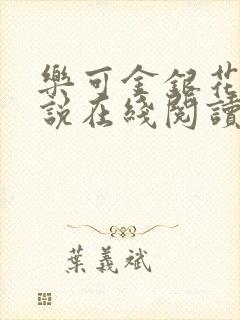 樂可金銀花
說在綫閱讀
葉義斌